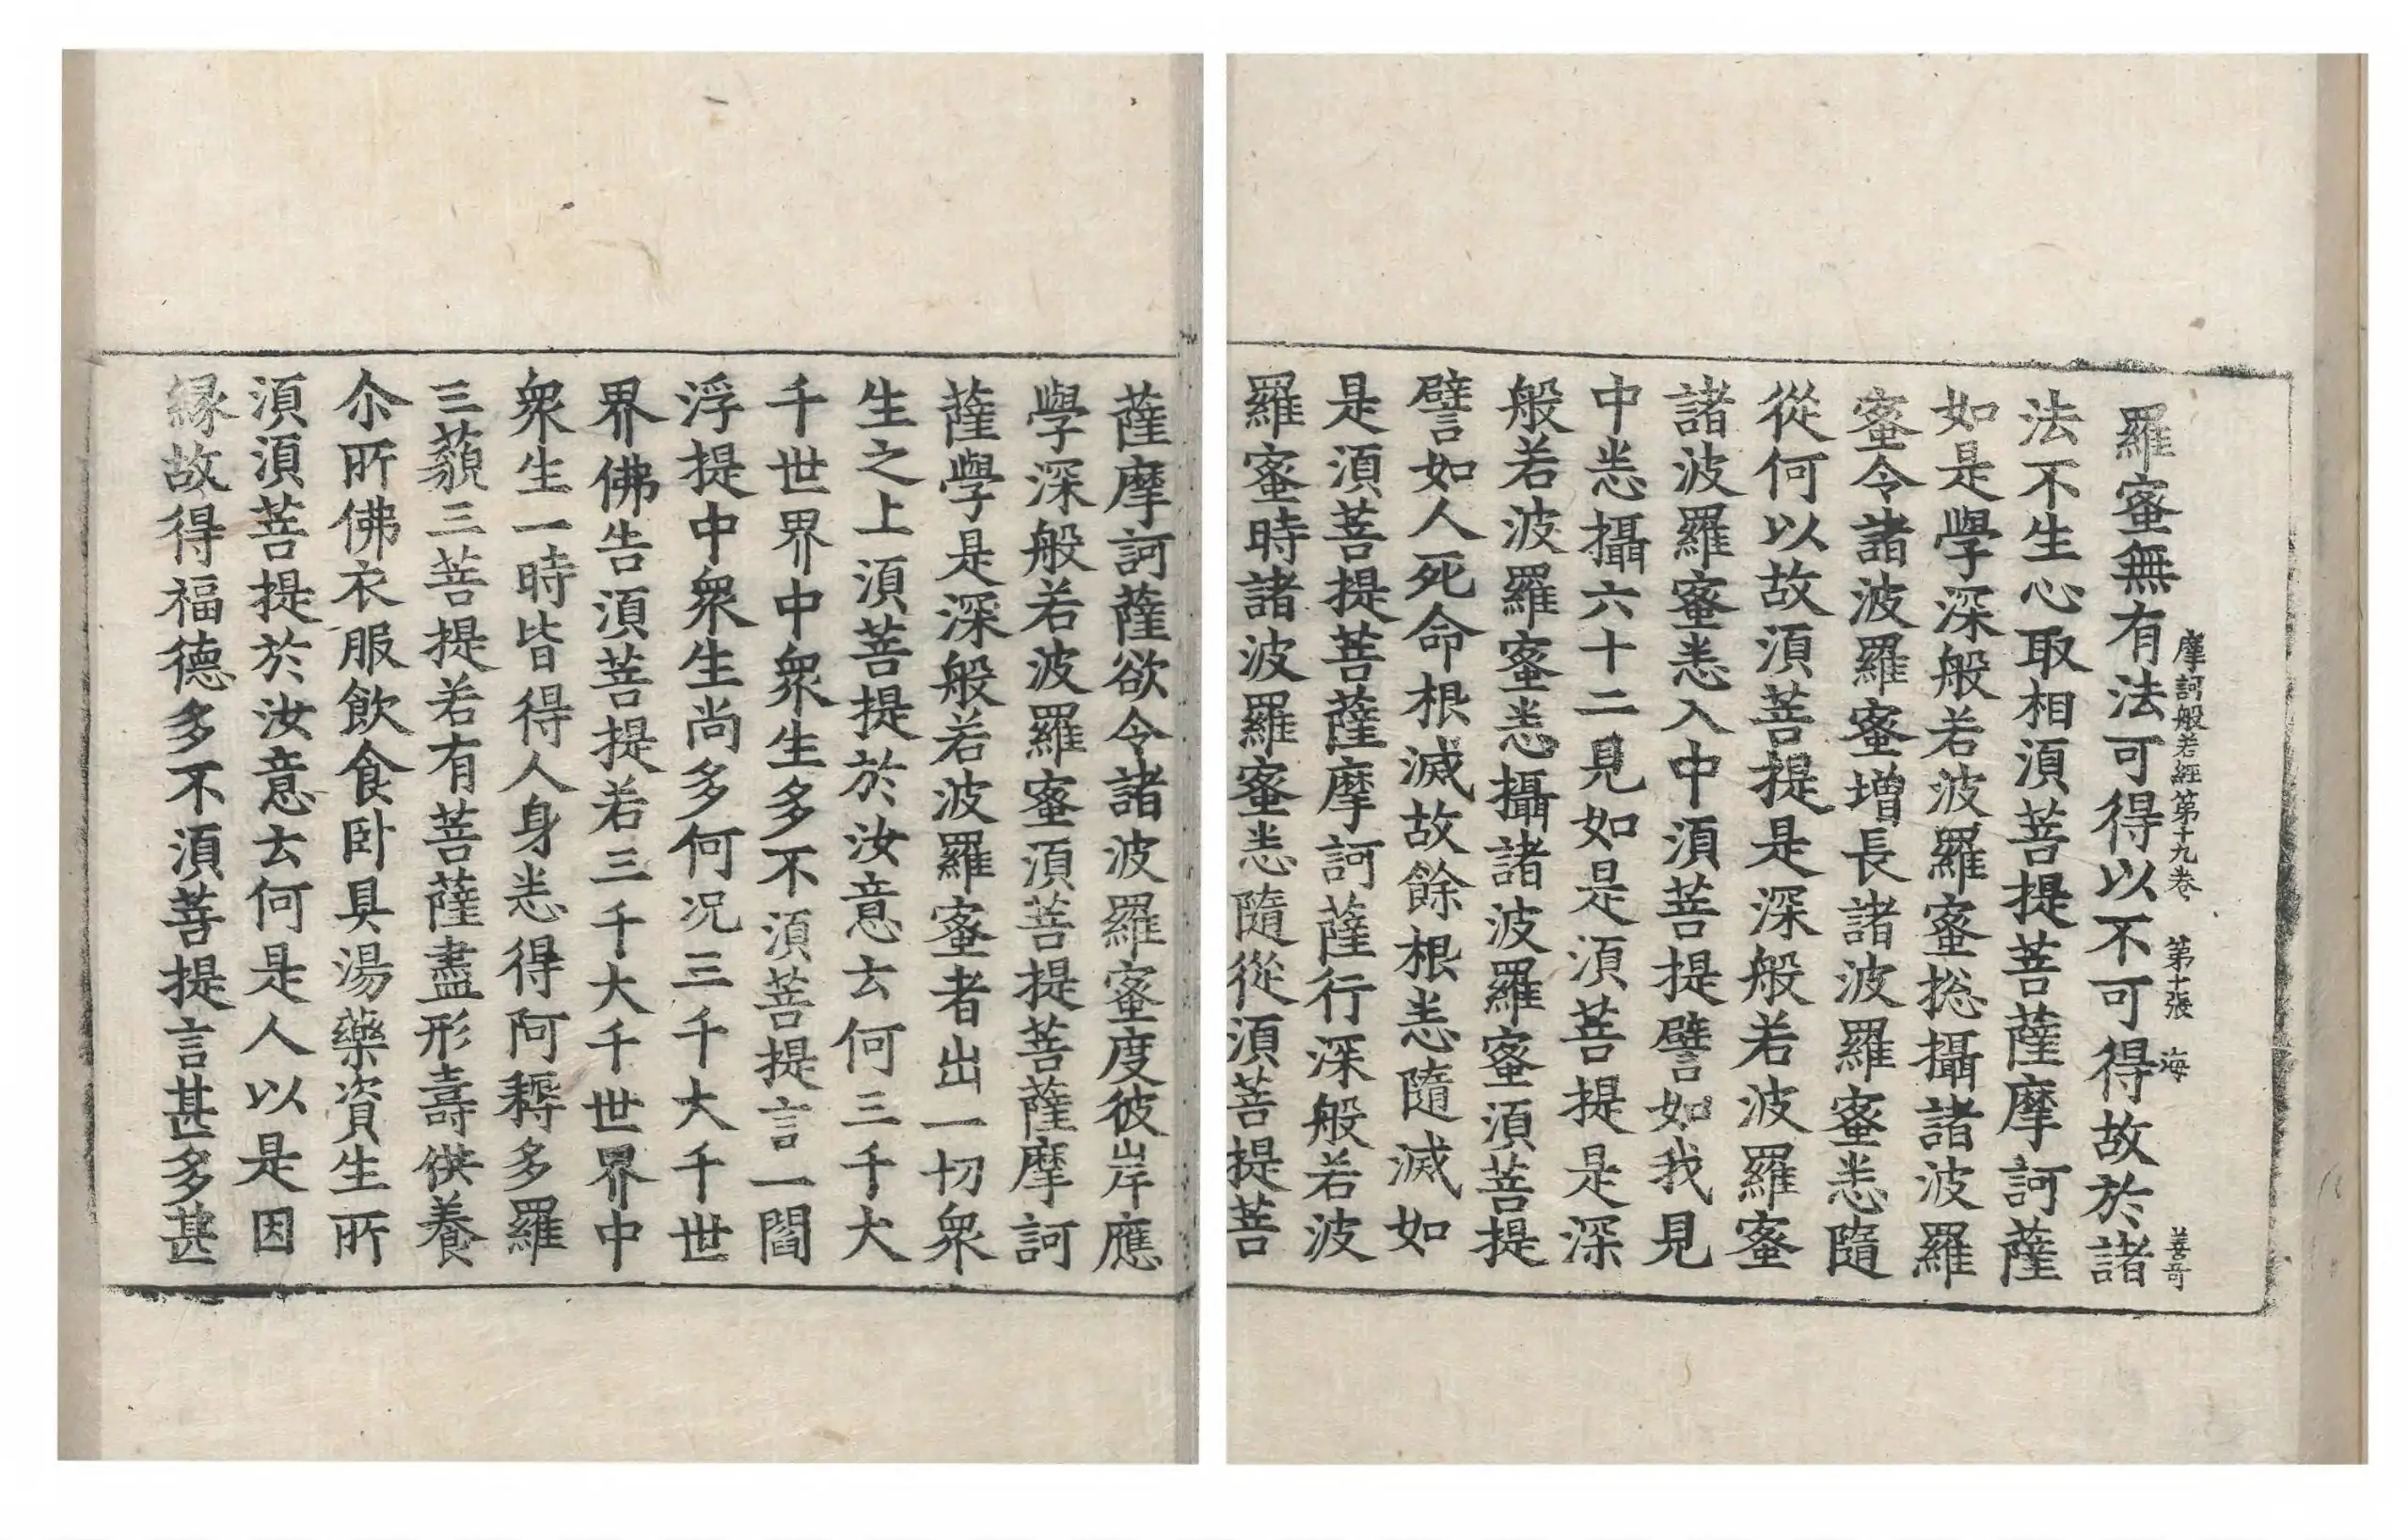 摩訶般若經第十九卷 第十張 海 善奇
羅蜜無有法可得以不可得故於諸
法不生心取相湏菩提菩薩摩訶薩
如是學深般若波羅蜜揔攝諸波羅
蜜令諸波羅蜜增長諸波羅蜜悉隨
從何以故湏菩提是深般若波羅蜜
諸波羅蜜悉入中湏菩提譬如我見
中悉攝六十二見如是湏菩提是深
般若波羅蜜悉攝諸波羅蜜湏菩提
譬如人死命根滅故餘根悉隨滅如
是湏菩提菩薩摩訶薩行深般若波
羅蜜時諸波羅蜜悉隨從湏菩提菩
薩摩訶薩欲令諸波羅蜜度彼岸應
學深般若波羅蜜湏菩提菩薩摩訶
薩學是深般若波羅蜜者出一切衆
生之上湏菩提於汝意云何三千大
千世界中衆生多不湏菩提言一閻
浮提中衆生尚多何况三千大千世
界佛告湏菩提若三千大千世界中
衆生一時皆得人身悉得阿耨多羅
三藐三菩提若有菩薩盡形壽供養
尒所佛衣服飲食卧具湯藥資生所
湏湏菩提於汝意云何是人以是因
縁故得福德多不湏菩提言甚多甚